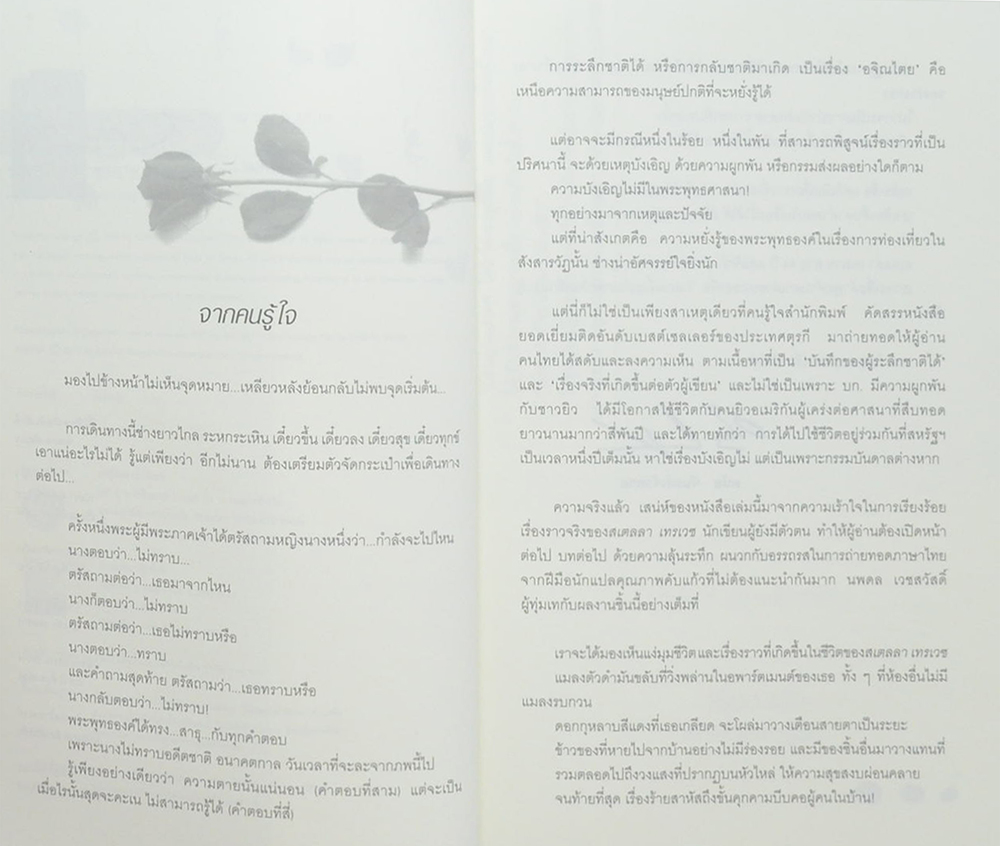 จากคนรู้ใจ
มองไปข้างหน้าไม่เห็นจุดหมาย...เหลียวหลังย้อนกลับไม่พบจุดเริ่มต้น...
การเดินทางนี้ช่างยาวไกล ระหกระเหิน เดี๋ยวขึ้น เดี๋ยวลง เดี๋ยวสุข เดี๋ยวทุกข์
เอาแน่อะไรไม่ได้ รู้แต่เพียงว่า อีกไม่นาน ต้องเตรียมตัวจัดกระเป๋าเพื่อเดินทาง
ต่อไป...
ครั้งหนึ่งพระผู้มีพระภาคเจ้าได้ตรัสถามหญิงนางหนึ่งว่า...กำลังจะไปไหน
นางตอบว่า...ไม่ทราบ...
ตรัสถามต่อว่า...เธอมาจากไหน
นางก็ตอบว่า...ไม่ทราบ
ตรัสถามต่อว่า...เธอไม่ทราบหรือ
นางตอบว่า...ทราบ
และคำถามสุดท้าย ตรัสถามว่า...เธอทราบหรือ
นางกลับตอบว่า...ไม่ทราบ!
พระพุทธองค์ได้ทรง...สาธุ...กับทุกคำตอบ
เพราะนางไม่ทราบอดีตชาติ อนาคตกาล วันเวลาที่จะละจากภพนี้ไป
รู้เพียงอย่างเดียวว่า ความตายนั้นแน่นอน (คำตอบที่สาม) แต่จะเป็น
เมื่อไรนั้นสุดจะคะเน ไม่สามารถรู้ได้ (คำตอบที่สี่)
การระลึกชาติได้ หรือการกลับชาติมาเกิด เป็นเรื่อง 'อจิณไตย' คือ
เหนือความสามารถของมนุษย์ปกติที่จะหยั่งรู้ได้
แต่อาจจะมีกรณีหนึ่งในร้อย หนึ่งในพัน ที่สามารถพิสูจน์เรื่องราวที่เป็น
ปริศนานี้ จะด้วยเหตุบังเอิญ ด้วยความผูกพัน หรือกรรมส่งผลอย่างใดก็ตาม
ความบังเอิญไม่มีในพระพุทธศาสนา!
ทุกอย่างมาจากเหตุและปัจจัย
แต่ที่น่าสังเกตคือ ความหยั่งรู้ของพระพุทธองค์ในเรื่องการท่องเที่ยวใน
สังสารวัฏนั้น ช่างน่าอัศจรรย์ใจยิ่งนัก
แต่นี่ก็ไม่ใช่เป็นเพียงสาเหตุเดียวที่คนรู้ใจสำนักพิมพ์ คัดสรรหนังสือ
ยอดเยี่ยมติดอันดับเบสต์เซลเลอร์ของประเทศตุรกี มาถ่ายทอดให้ผู้อ่าน
คนไทยได้สดับและลงความเห็น ตามเนื้อหาที่เป็น 'บันทึกของผู้ระลึกชาติได้'
และ 'เรื่องจริงที่เกิดขึ้นต่อตัวผู้เขียน' และไม่ใช่เป็นเพราะ บก. มีความผูกพัน
กับชาวยิว ได้มีโอกาสใช้ชีวิตกับคนยิวอเมริกันผู้เคร่งต่อศาสนาที่สืบทอด
ยาวนานมากว่าสี่พันปี และได้ทายทักว่า การได้ไปใช้ชีวิตอยู่ร่วมกันที่สหรัฐฯ
เป็นเวลาหนึ่งปีเต็มนั้น หาใช่เรื่องบังเอิญไม่ แต่เป็นเพราะกรรมบันดาลต่างหาก
ความจริงแล้ว เสน่ห์ของหนังสือเล่มนี้มาจากความเร้าใจในการเรียงร้อย
เรื่องราวจริงของสเตลลา เทรเวซ นักเขียนผู้ยังมีตัวตน ทำให้ผู้อ่านต้องเปิดหน้า
ต่อไป บทต่อไป ด้วยความลุ้นระทึก ผนวกกับอรรถรสในการถ่ายทอดภาษาไทย
จากฝีมือนักแปลคุณภาพคับแก้วที่ไม่ต้องแนะนำกันมาก นพดล เวชสวัสดิ์
ผู้ทุ่มเทกับผลงานชิ้นนี้อย่างเต็มที่
เราจะได้มองเห็นแง่มุมชีวิตและเรื่องราวที่เกิดขึ้นในชีวิตของสเตลลา เทรเวซ
แมลงตัวดำมันขลับที่วิ่งพล่านในอพาร์ตเมนต์ของเธอ ทั้ง ๆ ที่ห้องอื่นไม่มี
แมลงรบกวน
ดอกกุหลาบสีแดงที่เธอเกลียด จะโผล่มาวางเตือนสายตาเป็นระยะ
ข้าวของที่หายไปจากบ้านอย่างไม่มีร่องรอย และมีของชิ้นอื่นมาวางแทนที่
รวมตลอดไปถึงวงแสงที่ปรากฏบนหัวไหล่ ให้ความสุขสงบผ่อนคลาย
จนท้ายที่สุด เรื่องร้ายสาหัสถึงขั้นคุกคามบีบคอผู้คนในบ้าน!